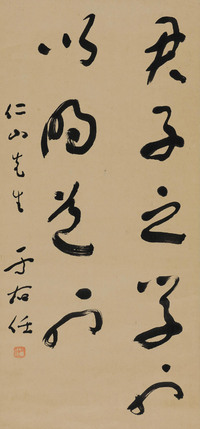 君子之學也
以明道也
仁山先生 于右任